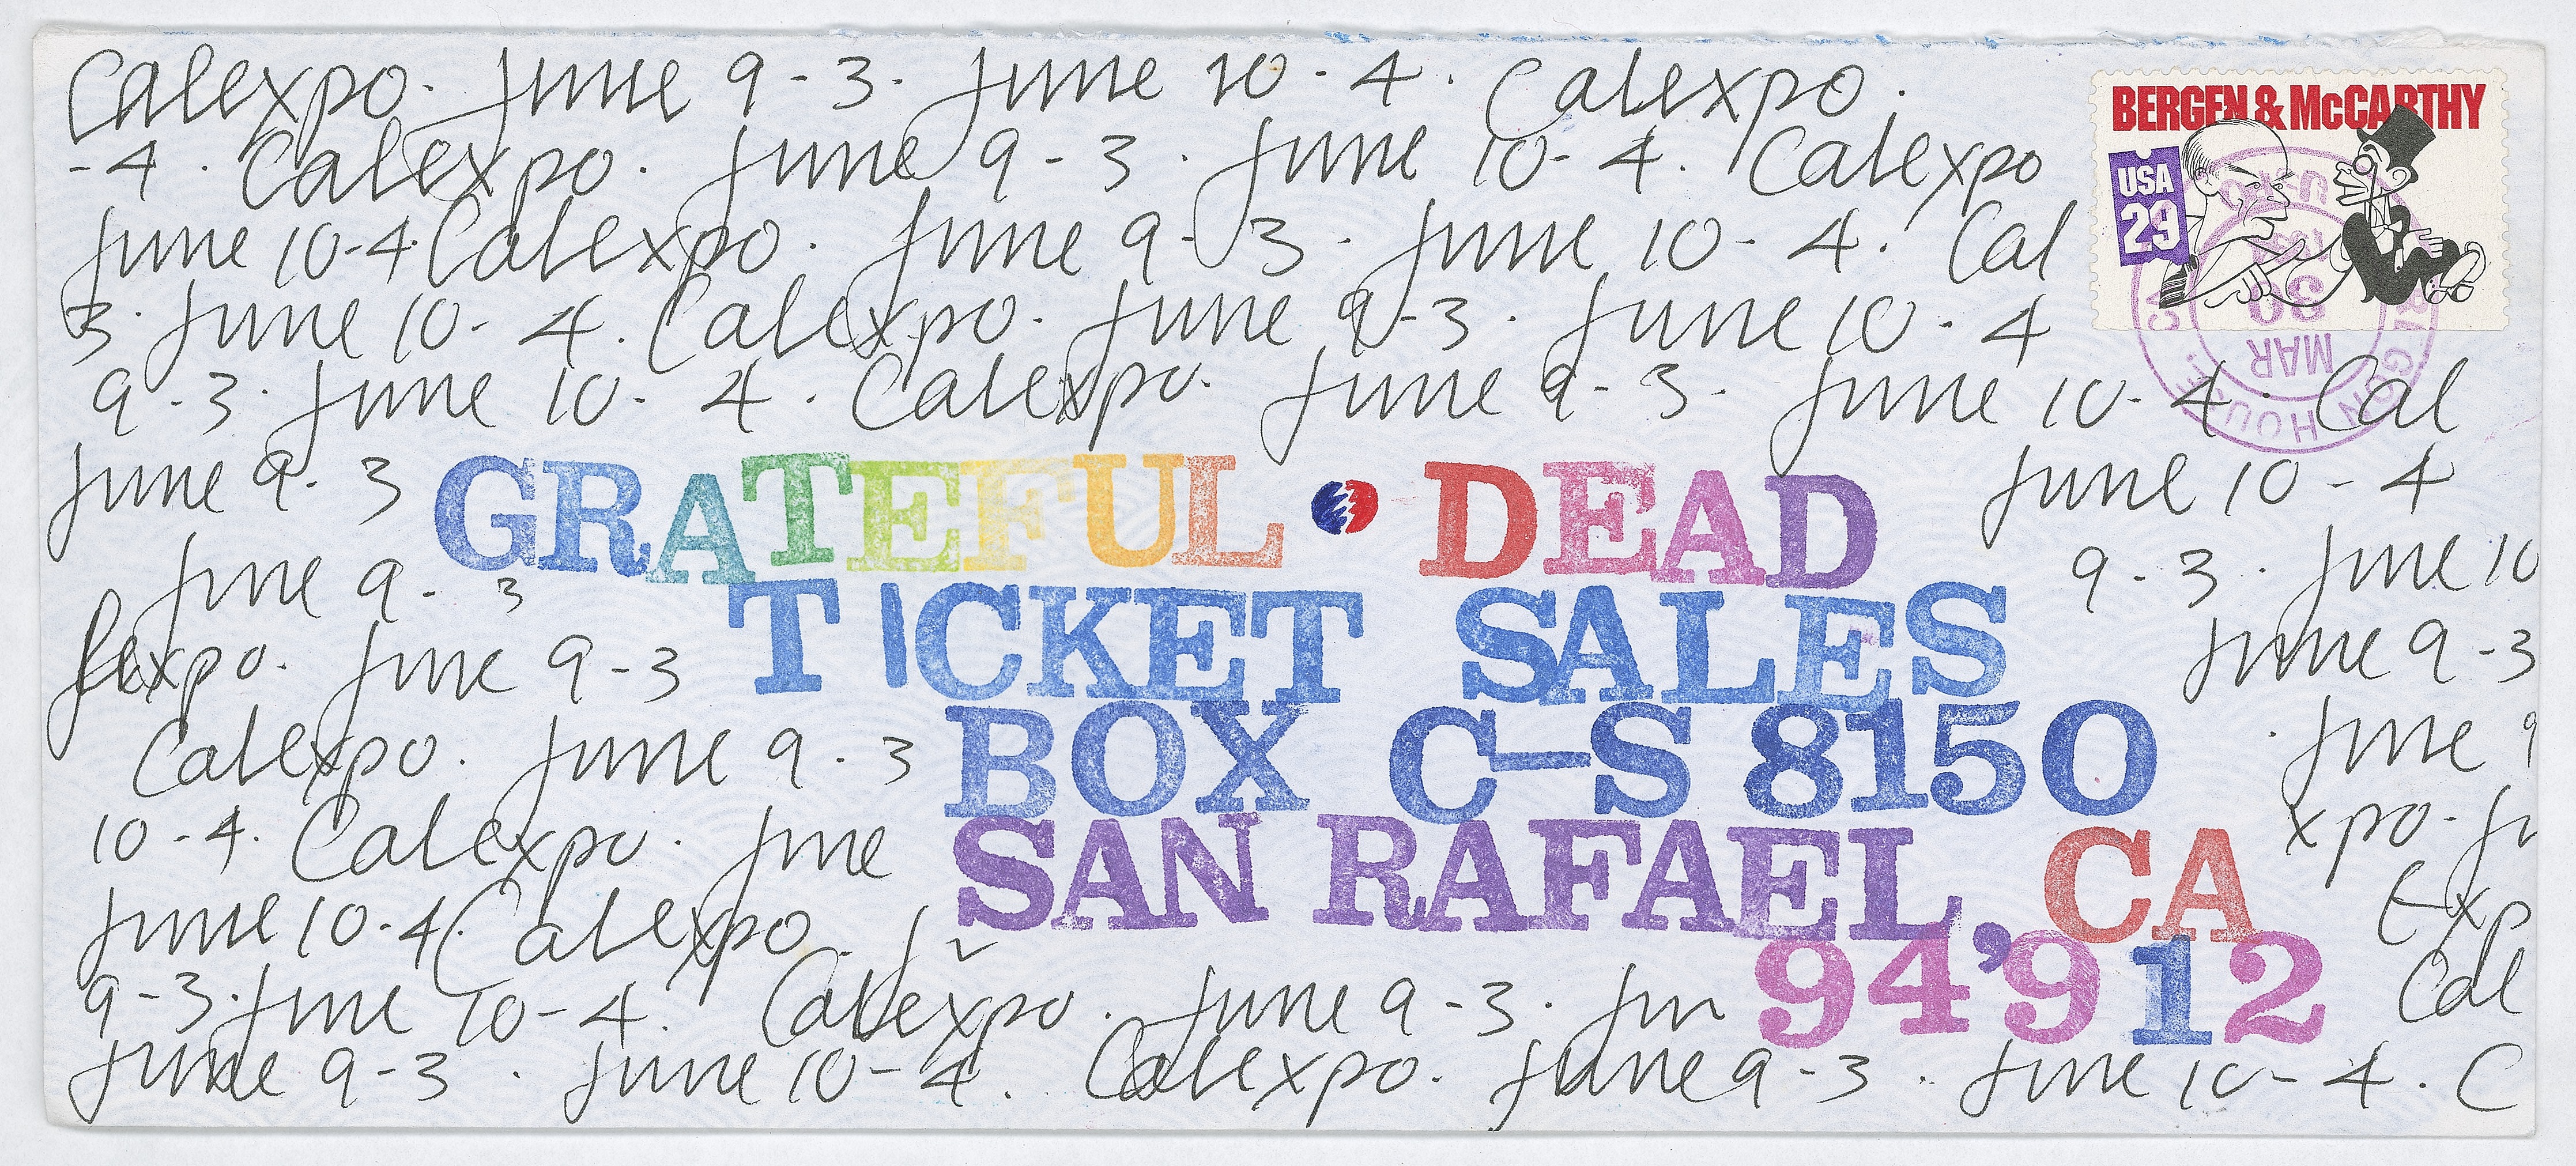 Calexpo. June 9-3. June 10-4. Calexpo.
BERGEN & McCARTHY
-4. Calexpo. June 9-3. June 10-4. Calexpo
USA
29
June 10-4. Calexpo. June 9-3. June 10-4. Cal
3. June 10-4. Calexpo. June 9-3. June 10-4
MAR
30
9-3. June 10-4. Calexpo. June 9-3. June 10-4. Cal
June 9-3 GRATEFUL DEAD June 10-4
June 9-3 9-3. June 10
TICKET SALES
expo. June 9-3 June 9-3
Calexpo. June 9-3 BOX C-S 8150 . June 9
10-4. Calexpo. June SAN RAFAEL, CA xpo. Ju
June 10-4. Calexpo. Exp
9-3. June 10-4. Calexpo. June 9-3. Jun 94912 Cal
June 9-3. June 10-4. Calexpo. June 9-3. June 10-4. C